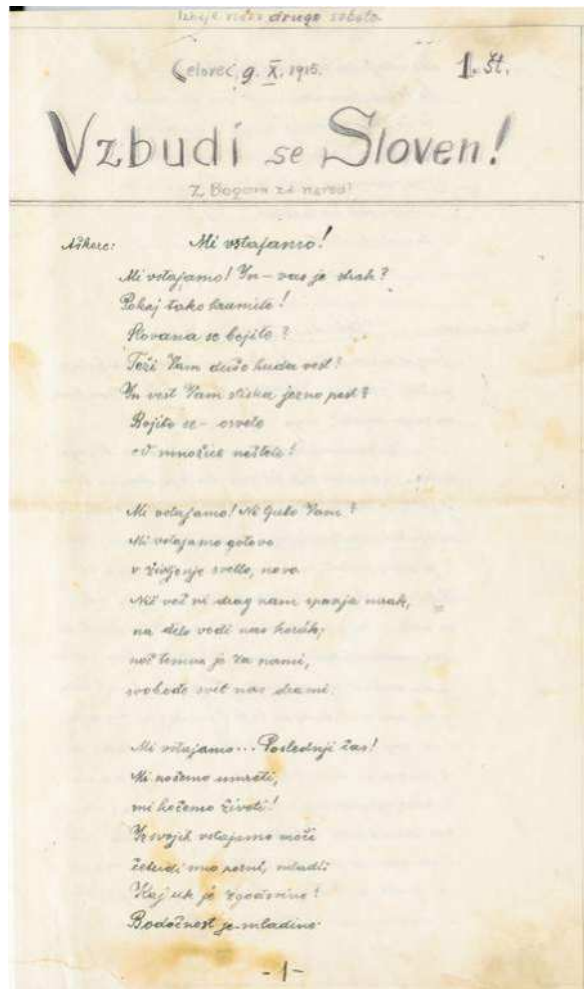 Izhaja vsako drugo soboto.
Celovec, 9. X. 1915.
1. št.
Vzbudi se Sloven!
Z Bogom za narod!
Aškerc:
Mi vstajamo!
Mi vstajamo! In – vas je strah?
Pokaj tako hrumite!
Slovana se bojite?
Teži Vam dušo huda vest?
In vest Vam stiska jezno pest?
Bojite se – osvete
od množice neštete!
Mi vstajamo! Ni ljubo Vam?
Mi vstajamo gotovo
v življenje svetlo, novo.
Nič več ni drag nam spanja mrak,
na delo vodi nas korak;
noč temna je za nami,
svobode svit nas drami.
Mi vstajamo... Poslednji čas!
Mi nočemo umreti,
mi hočemo živeti!
Iz svojih vstajamo moči
četudi smo pozni, mladi:
Kaj uk je zgodovine?
Bodočnost je mladine.
- 1 -